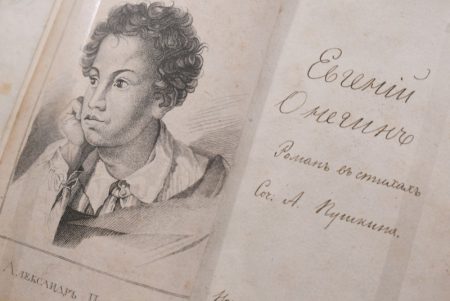 Евгеній
Онегинъ
Романъ въ стихахъ
Соч. А. Пушкина.
Александръ